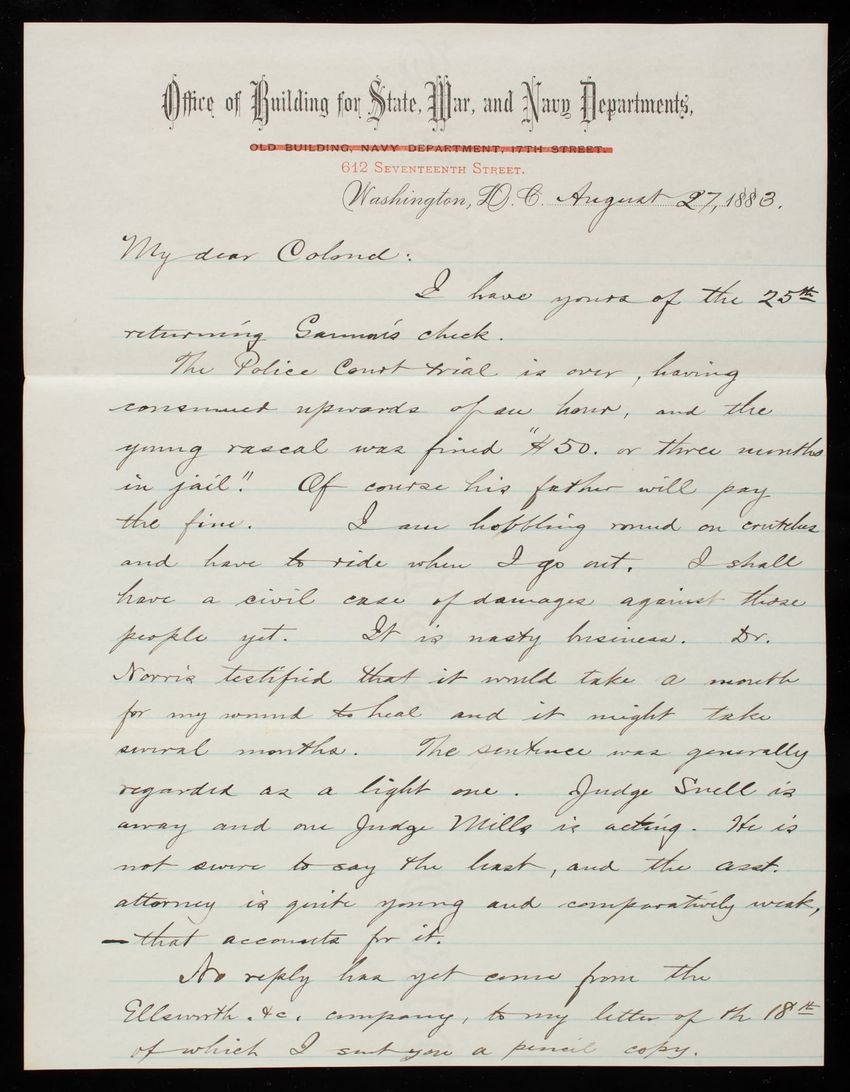 Office of Building for State, War, and Navy Departments,
OLD BUILDING, NAVY DEPARTMENT, 17TH STREET.
612 SEVENTEENTH STREET.
Washington, D.C. August 27, 1883.
My dear Colonel:
I have yours of the 25th
returning check.
The Police Court trial is over, having
consumed upwards of an hour, and the
young rascal was fined "$50. or three months
in jail". Of course his father will pay
the fine. I am hobbling round on crutches
and have to ride when I go out. I shall
have a civil case of damages against those
people yet. It is nasty business. Dr.
Norris testified that it would take a month
for my wound to heal and it might take
several months. The sentence was generally
regarded as a light one. Judge Snell is
away and one Judge Mills is acting. He is
not severe to say the least, and the asst.
attorney is quite young and comparatively weak,
— that accounts for it.
No reply has yet come from the
Ellsworth &c. company, to my letter of th 18th
of which I sent you a pencil copy.